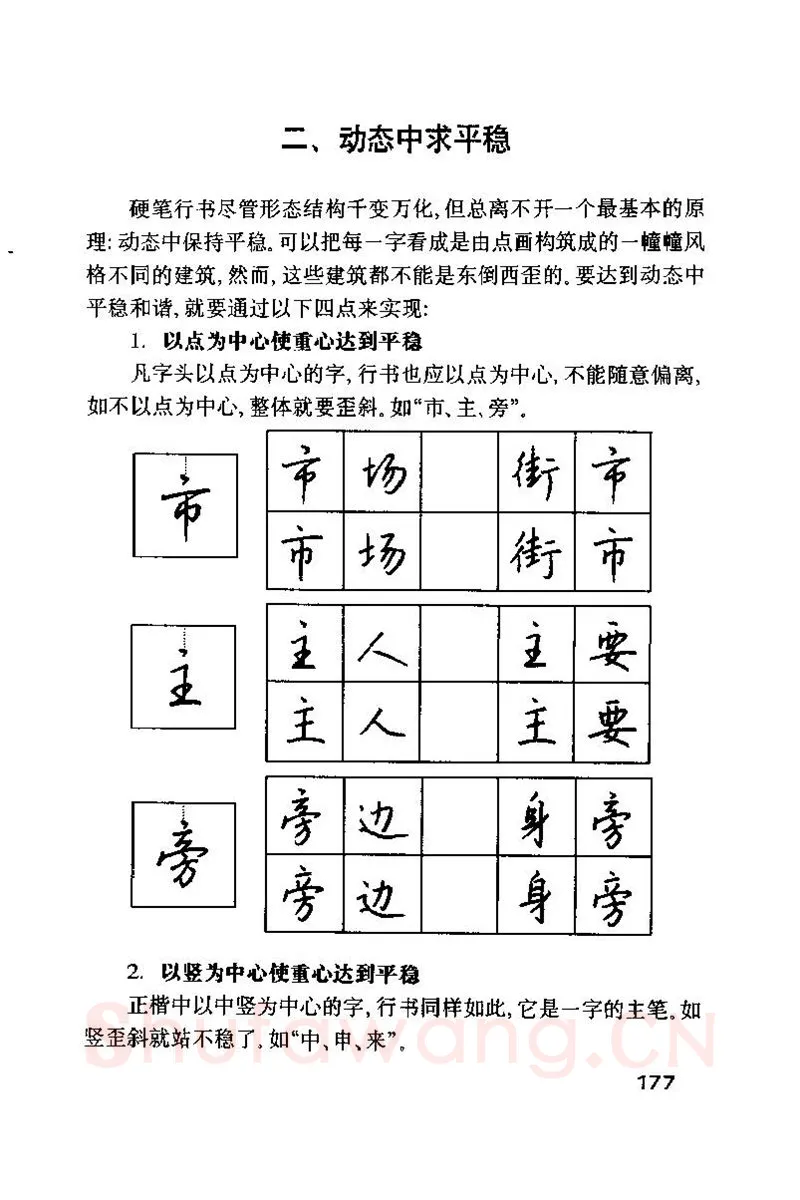 二、动态中求平稳
硬笔行书尽管形态结构千变万化,但总离不开一个最基本的原
理:动态中保持平稳。可以把每一字看成是由点画构筑成的一幢幢风
格不同的建筑,然而,这些建筑都不能是东倒西歪的。要达到动态中
平稳和谐,就要通过以下四点来实现:
1. 以点为中心使重心达到平稳
凡字头以点为中心的字,行书也应以点为中心,不能随意偏离,
如不以点为中心,整体就要歪斜。如“市、主、旁”。
市
市场 街市
市场 街市
主
主人 主要
主人 主要
旁
旁边 身旁
旁边 身旁
2. 以竖为中心使重心达到平稳
正楷中以中竖为中心的字,行书同样如此,它是一字的主笔。如
竖歪斜就站不稳了。如“中、申、来”。
Shufawang.CN
177